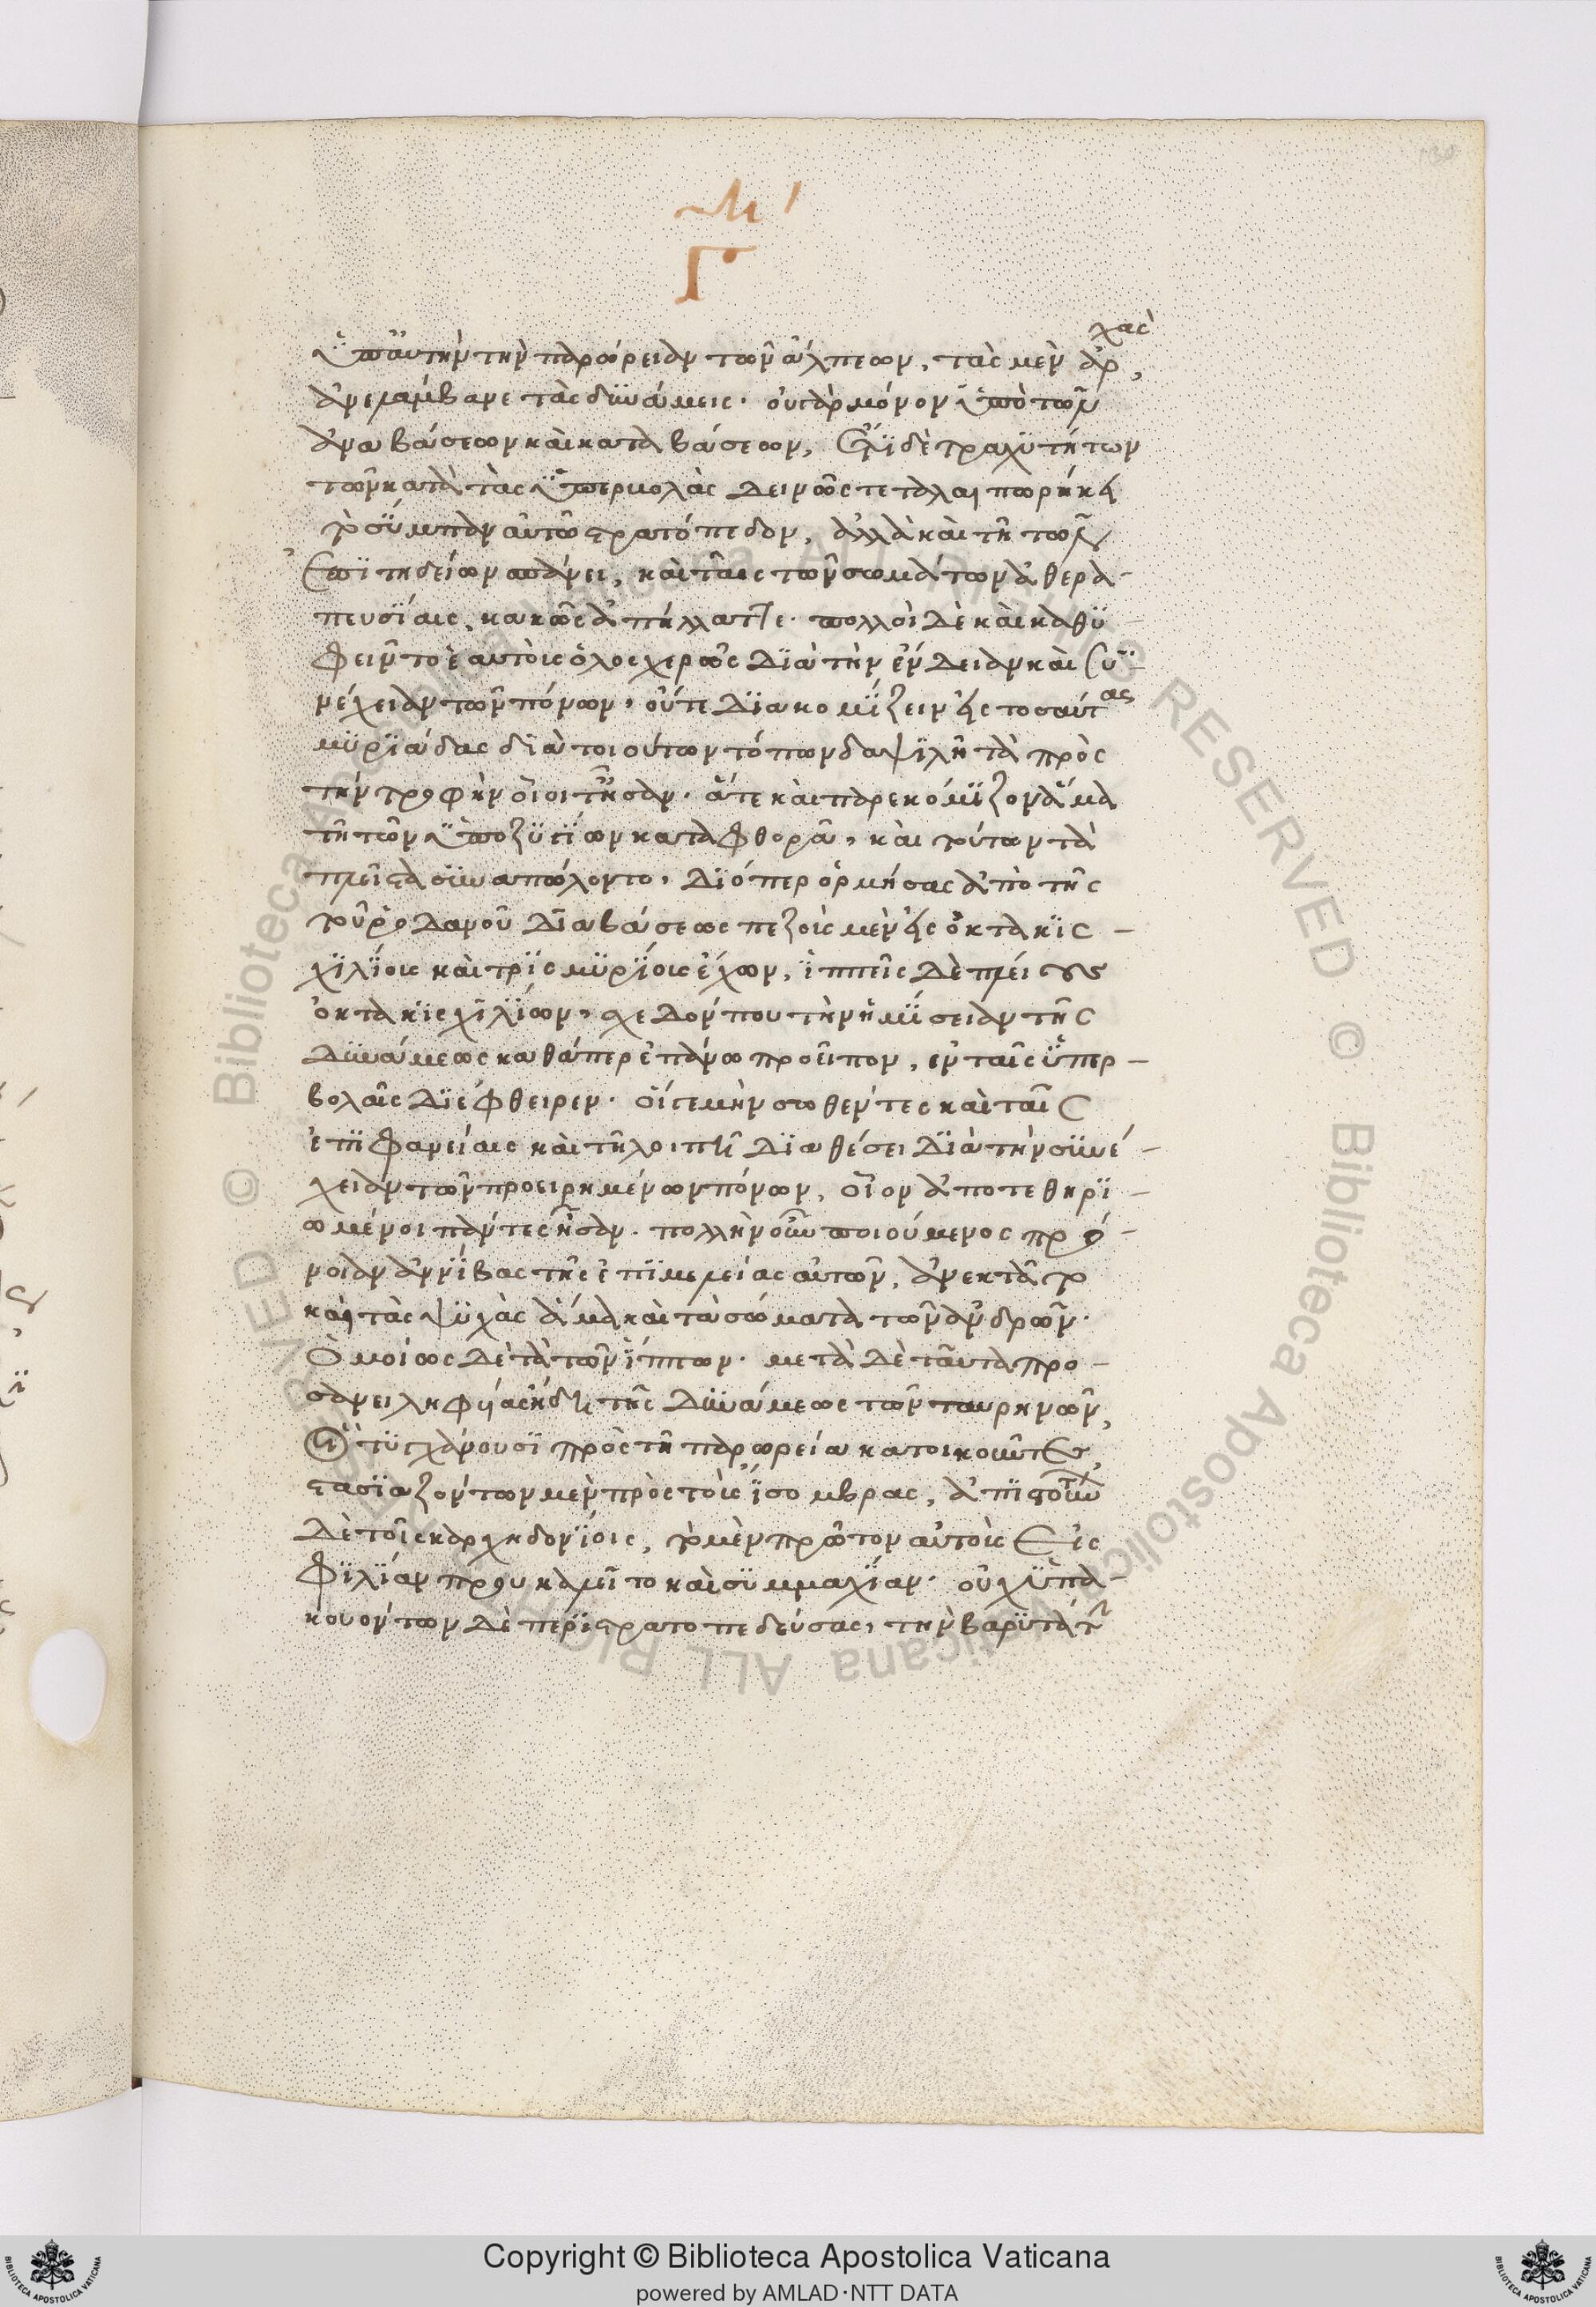 Γ
ὑπ' αὐτὴν τὴν παρώρειαν τῶν ἄλπεων, τὰς μὲν ἀρχὰς
ἀνελάμβανε τὰς δυνάμεις. οὐ γὰρ μόνον ὑπὸ τῶν
ἀναβάσεων καὶ καταβάσεων, ἔτι δὲ τραχυτήτων
τῶν κατὰ τὰς ὑπερβολὰς δεινῶς τεταλαιπωρήκει
τὸ σύμπαν αὐτῶ στρατόπεδον, ἀλλὰ καὶ τῆ τῶν
ἐπιτηδείων σπάνει, καὶ ταῖς τῶν σωμάτων ἀθερα-
πευσίαις, κακῶς ἀπήλλαττε. πολλοὶ δὲ καὶ καθυ-
φεῖντο ἑαυτοὺς ὁλοσχερῶς διὰ τὴν ἔνδειαν καὶ συ-
νέχειαν τῶν πόνων, οὔτε διακομίζειν εἰς τοσαύτας
μυριάδας διὰ τοιούτων τόπων δαψιλῆ τὰ πρὸς
τὴν τροφὴν οἷοί τ' ἦσαν. ἅ τε καὶ παρεκόμιζον ἅμα
τῆ τῶν ὑποζυγίων καταφθορᾶ, καὶ τούτων τὰ
πλεῖστα συναπώλοντο, διόπερ ὁρμήσας ἀπὸ τῆς
τοῦ ῥοδανοῦ διαβάσεως πεζοὺς μὲν εἰς ὀκτακις-
χιλίους καὶ τρισμυρίους ἔχων, ἱππεῖς δὲ πλείους
ὀκτακισχιλίων, σχεδόν που τὴν ἡμίσειαν τῆς
δυνάμεως καθάπερ ἐπάνω προεῖπον, ἐν ταῖς ὑπερ-
βολαῖς διέφθειρεν. οἵ γε μὴν σωθέντες καὶ ταῖς
ἐπιφανείαις καὶ τῆ λοιπῆ διαθέσει διὰ τὴν συνέ-
χειαν τῶν προειρημένων πόνων, οἷον ἀποτεθηρι-
ωμένοι πάντες ἦσαν. πολλὴν οὖν ποιούμενος πρό-
νοιαν ἀννίβας τῆς ἐπιμελείας αὐτῶν, ἀνεκτᾶτο
καὶ τὰς ψυχὰς ἅμα καὶ τὰ σώματα τῶν ἀνδρῶν.
Ὁμοίως δὲ τὰ τῶν ἵππων. μετὰ δὲ ταῦτα προ-
σανειληφυίας ἤδη τῆς δυνάμεως τῶν ταυρηνῶν,
οἳ τυγχάνουσι πρὸς τῆ παρωρεία κατοικοῦντες,
στασιαζόντων μὲν πρὸς τοὺς ἴσομβρας, ἀπιστούντων
δὲ τοῖς καρχηδονίοις, τὸ μὲν πρῶτον αὐτοὺς εἰς
φιλίαν προυκαλεῖτο καὶ συμμαχίαν. οὐχ ὑπα-
κουόντων δὲ περιστρατοπεδεύσας, τὴν βαρυτάτην
Copyright © Biblioteca Apostolica Vaticana
powered by AMLAD·NTT DATA